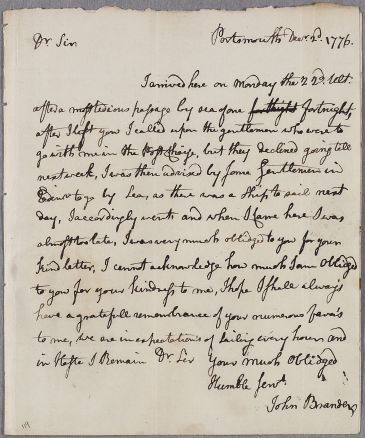 Dr. Sir
Portsmouth Decr. 2d. 1776.
I arived here on Monday the 22d. Ult.
after a most tedious passage by sea of one fortnight,
after I left you I called upon the gentlemen who were to
go with me in the Post Chaise, but they declined going till
next week, I was then advised by some Gentlemen in
to go by Sea, as there was a Ship to sail next
day, I accordingly went and when I Came here I was
almost to late, I was very much obliged to you for your
kind letter, I cannot acknowledge how much I am Obliged
to you for your kindness to me, I hope I shall always
have a gratefull remembrance of your numerous favors
to me, we are in expectations of sailing every hour and
in Haste I Remain Dr. Sir Your much Obliged
Humble Servt.
John Brander